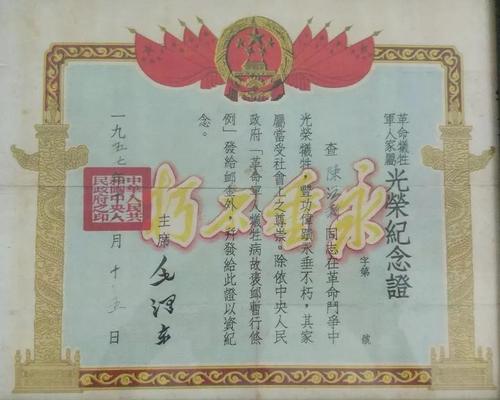 革命犧牲
軍人家屬
光榮紀念證
字第 號
查 陳 同志在革命鬥爭中
光榮犧牲，豐功偉蹟永垂不朽，其家
屬當受社會上之尊崇。除依中央人民
政府「革命軍人犧牲病故褒卹暫行條
例」發給卹金外，幷發給此證以資紀
念。
永垂不朽
主席 毛澤東
中華人民共
和國中央人
民政府之印
一九五七 月十五日